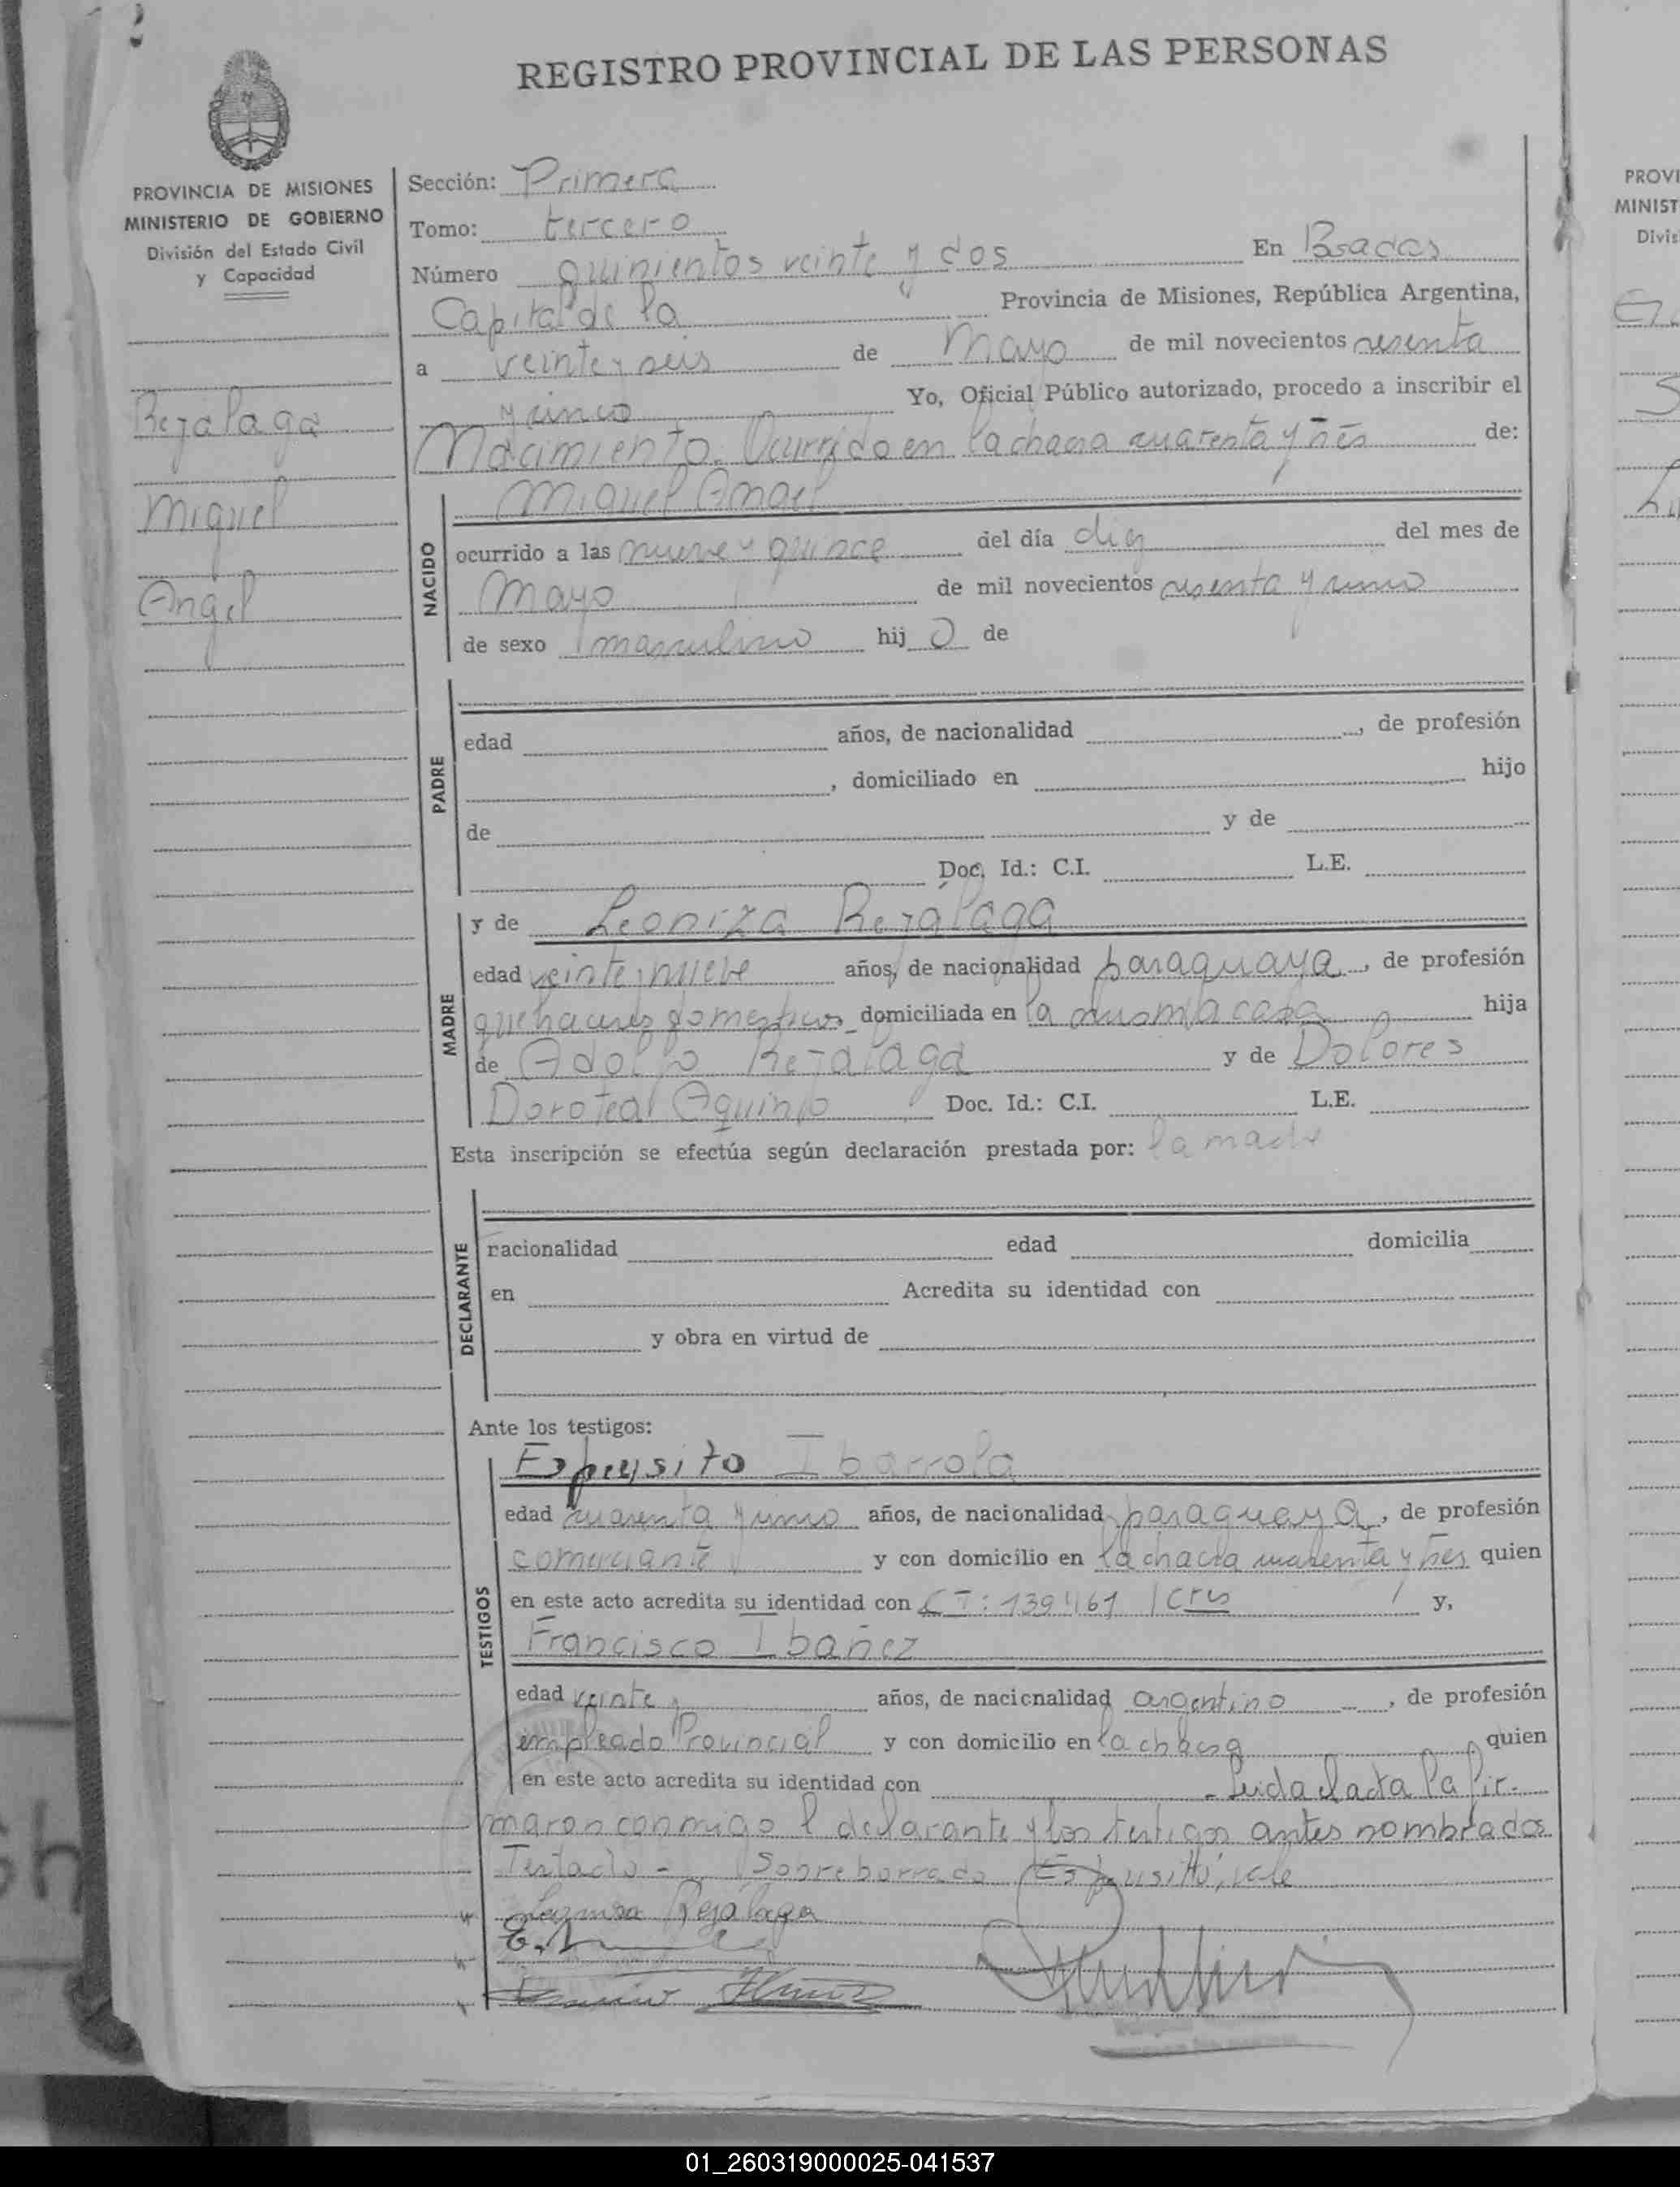 REGISTRO PROVINCIAL DE LAS PERSONAS
PROVINCIA DE MISIONES
MINISTERIO DE GOBIERNO
División del Estado Civil
y Capacidad
Rejalaga
Miguel
Angel
Sección: Primera
Tomo: tercero
Número quinientos veinte y dos En Posadas
Capital de la Provincia de Misiones, República Argentina,
a veinte y seis de Mayo de mil novecientos sesenta
y cinco Yo, Oficial Público autorizado, procedo a inscribir el
Nacimiento. Ocurrido en la chacra cuarenta y tres de:
Miguel Angel
NACIDO
ocurrido a las nueve y quince del día diez del mes de
Mayo de mil novecientos sesenta y uno
de sexo masculino hijo de
PADRE
edad años, de nacionalidad , de profesión
, domiciliado en hijo
de y de
Doc. Id.: C.I. L.E.
MADRE
y de Leoniza Rejalaga
edad veinte y nueve años, de nacionalidad paraguaya, de profesión
quehaceres domesticos domiciliada en la misma casa hija
de Adolfo Rejalaga y de Dolores
Dorotea Aquino Doc. Id.: C.I. L.E.
Esta inscripción se efectúa según declaración prestada por: la madre
DECLARANTE
nacionalidad edad domicilia
en Acredita su identidad con
y obra en virtud de
Ante los testigos:
TESTIGOS
Ibarrola
edad cuarenta y uno años, de nacionalidad paraguaya, de profesión
comerciante y con domicilio en la chacra cuarenta y tres quien
en este acto acredita su identidad con CI: 139461 y,
Francisco Ibañez
edad veinte años, de nacionalidad argentino, de profesión
empleado Provincial y con domicilio en quien
en este acto acredita su identidad con - Leida el acta la fir-
maron conmigo l declarante y los testigos antes nombrados
Testado - Sobreborrado vale
Rejálaga
PROVI
MINIST
Divis
01_260319000025-041537